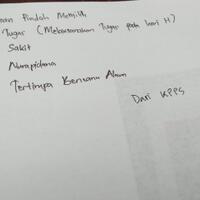 Pindah Memilih
Tugas (Melaksanakan Tugas pada hari H)
Sakit
Narapidana
Tertimpa Bencana Alam
Dari KPPS